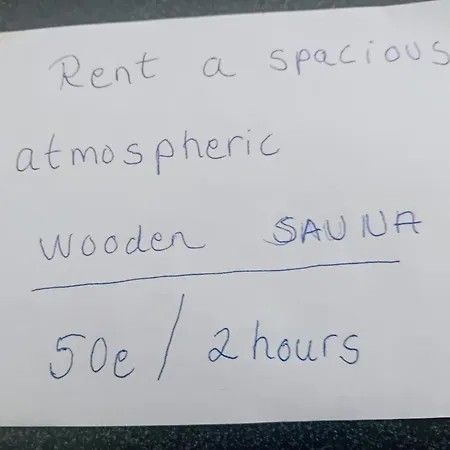 Rent a spacious
atmospheric
wooden SAUNA
50e/2hours